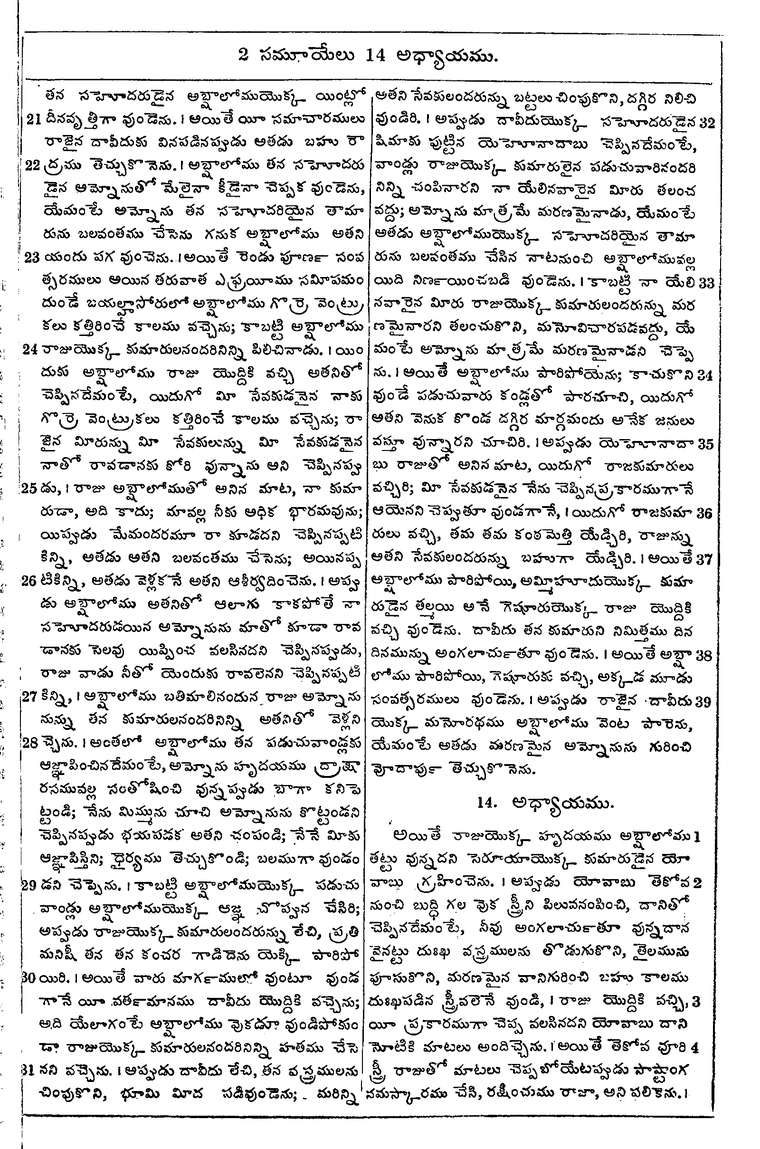 2 సమూయేలు 14 అధ్యాయము.
తన సహెూదరుడైన అబ్షాలోముయొక్క యింట్లో
21 దీనవృత్తిగా వుండెను. । అయితే యీ సమాచారములు
రాజైన దావీదుకు వినపడినప్పుడు అతడు బహు రౌ
22 ద్రము తెచ్చుకొనెను. । అబ్షాలోము తన సహెూదరు
డైన ఆమ్నోనుతో మేలైనా కీడైనా చెప్పక వుండెను,
యేమంటే అమ్నోను తన సహెూదరియైన తామా
రును బలవంతము చేసెను గనుక అబ్షాలోము అతని
23 యందు పగ వుంచెను. । అయితే రెండు పూర్ణ సంవ
త్సరములు అయిన తరువాత ఎఫ్రయీము సమీపమం
దుండే బయల్హాసోరులో అబ్షాలోము గొర్రె వెంట్రు
కలు కత్తిరించే కాలము వచ్చెను; కాబట్టి అబ్షాలోము
24 రాజుయొక్క కుమారులనందరినిన్ని పిలిచినాడు. । యిం
దుకు అబ్షాలోము రాజు యొద్దికి వచ్చి అతనితో
చెప్పినదేమంటే, యిదుగో మీ సేవకుడనైన నాకు
గొర్రె వెంట్రుకలు కత్తిరించే కాలము వచ్చెను; రా
జైన మీరున్ను మీ సేవకులున్ను మీ సేవకుడనైన
నాతో రావడానకు కోరి వున్నాను అని చెప్పినప్పు
25 డు, । రాజు అబ్షాలోముతో అనిన మాట, నా కుమా
రుడా, అది కాదు; మావల్ల నీకు అధిక భారమవును;
యిప్పుడు మేమందరమూ రా కూడదని చెప్పినప్పటి
కిన్ని, అతడు అతని బలవంతము చేసెను; అయినప్ప
26 టికిన్ని, అతడు వెళ్లకనే అతని ఆశీర్వదించెను. । అప్పు
డు అబ్షాలోము అతనితో ఆలాగు కాకపోతే నా
సహెూదరుడయిన అమ్నోనును మాతో కూడా రావ
డానకు సెలవు యిప్పించ వలసినదని చెప్పినప్పుడు,
రాజు వాడు నీతో యెందుకు రావలెనని చెప్పినప్పటి
27 కిన్ని, । అబ్షాలోము బతిమాలినందున రాజు అమ్నోను
నున్ను తన కుమారులనందరినిన్ని అతనితో వెళ్లని
28 చ్చెను. । అంతలో అబ్షాలోము తన పడుచువాండ్లకు
ఆజ్ఞాపించినదేమంటే, అమ్నోను హృదయము ద్రాక్షా
రసమువల్ల సంతోషించి వున్నప్పుడు బాగా కనిపె
ట్టండి; నేను మిమ్మును చూచి అమ్నోనును కొట్టండని
చెప్పినప్పుడు భయపడక అతని చంపండి; నేనే మీకు
ఆజ్ఞాపిస్తిని; ధైర్యము తెచ్చుకొండి; బలముగా వుండం
29 డని చెప్పెను. । కాబట్టి అబ్షాలోముయొక్క పడుచు
వాండ్లు అబ్షాలోముయొక్క ఆజ్ఞ చొప్పున చేసిరి;
అప్పుడు రాజుయొక్క కుమారులందరున్ను లేచి, ప్రతి
మనిషీ తన తన కంచర గాడిదెను యెక్కి పారిపో
30 యిరి. । అయితే వారు మార్గములో వుంటూ వుండ
గానే యీ వర్తమానము దావీదు యొద్దికి వచ్చెను;
అది యేలాగంటే అబ్షాలోము వొకడూ వుండిపోకుం
డా రాజుయొక్క కుమారులనందరినిన్ని హతము చేసె
31 నని వచ్చెను. । అప్పుడు దావీదు లేచి, తన వస్త్రములను
చింపుకొని, భూమి మీద పడివుండెను; మరిన్ని
అతని సేవకులందరున్ను బట్టలు చింపుకొని, దగ్గిర నిలిచి
వుండిరి. । అప్పుడు దావీదుయొక్క సహెూదరుడైన 32
షిమాకు పుట్టిన యెహెూనాదాబు చెప్పినదేమంటే,
వాండ్లు రాజుయొక్క కుమారులైన పడుచువారినందరి
నిన్ని చంపినారని నా యేలినవారైన మీరు తలంచ
వద్దు; అమ్నోను మాత్రమే మరణమైనాడు, యేమంటే
అతడు అబ్షాలోముయొక్క సహెూదరియైన తామా
రును బలవంతము చేసిన నాటనుంచి అబ్షాలోమువల్ల
యిది నిర్ణయించబడి వుండెను. । కాబట్టి నా యేలి 33
నవారైన మీరు రాజుయొక్క కుమారులందరున్ను మర
ణమైనారని తలంచుకొని, మనోవిచారపడవద్దు, యే
మంటే అమ్నోను మాత్రమే మరణమైనాడని చెప్పె
ను. । అయితే అబ్షాలోము పారిపోయెను; కాచుకొని 34
వుండే పడుచువారు కండ్లతో పారచూచి, యిదుగో
అతని వెనుక కొండ దగ్గిర మార్గమందు అనేక జనులు
వస్తూ వున్నారని చూచిరి. । అప్పుడు యెహెూనాదా 35
బు రాజుతో అనిన మాట, యిదుగో రాజకుమారులు
వచ్చిరి; మీ సేవకుడనైన నేను చెప్పిన ప్రకారముగానే
ఆయెనని చెప్పుతూ వుండగానే, । యిదుగో రాజకుమా 36
రులు వచ్చి, తమ తమ కంఠమెత్తి యేడ్చిరి, రాజున్ను
అతని సేవకులందరున్ను బహుగా యేడ్చిరి. । అయితే 37
అబ్షాలోము పారిపోయి, అమ్మిహూదుయొక్క కుమా
రుడైన తల్మయి అనే గెషూరుయొక్క రాజు యొద్దికి
వచ్చి వుండెను. దావీదు తన కుమారుని నిమిత్తము దిన
దినమున్ను అంగలార్చుతూ వుండెను. । అయితే అబ్షా 38
లోము పారిపోయి, గెషూరుకు వచ్చి, అక్కడ మూడు
సంవత్సరములు వుండెను. । అప్పుడు రాజైన దావీదు 39
యొక్క మనోరథము అబ్షాలోము వెంట పారెను,
యేమంటే అతడు మరణమైన అమ్నోనును గురించి
వోదార్పు తెచ్చుకొనెను.
14. అధ్యాయము.
అయితే రాజుయొక్క హృదయము అబ్షాలోము 1
తట్టు వున్నదని సెరూయాయొక్క కుమారుడైన యో
వాబు గ్రహించెను. । అప్పుడు యోవాబు తెకోవ 2
నుంచి బుద్ధి గల వొక స్త్రీని పిలువనంపించి, దానితో
చెప్పినదేమంటే, నీవు అంగలార్చుతూ వున్నదాన
వైనట్టు దుఃఖ వస్త్రములను తొడుగుకొని, తైలమును
పూసుకొని, మరణమైన వానిగురించి బహు కాలము
దుఃఖపడిన స్త్రీవలెనే వుండి, । రాజు యొద్దికి వచ్చి, 3
యీ ప్రకారముగా చెప్ప వలసినదని యోవాబు దాని
నోటికి మాటలు అందిచ్చెను. । అయితే తెకోవ వూరి 4
స్త్రీ రాజుతో మాటలు చెప్పబోయేటప్పుడు సాష్టాంగ
నమస్కారము చేసి, రక్షించుము రాజా, అని పలికెను. ।